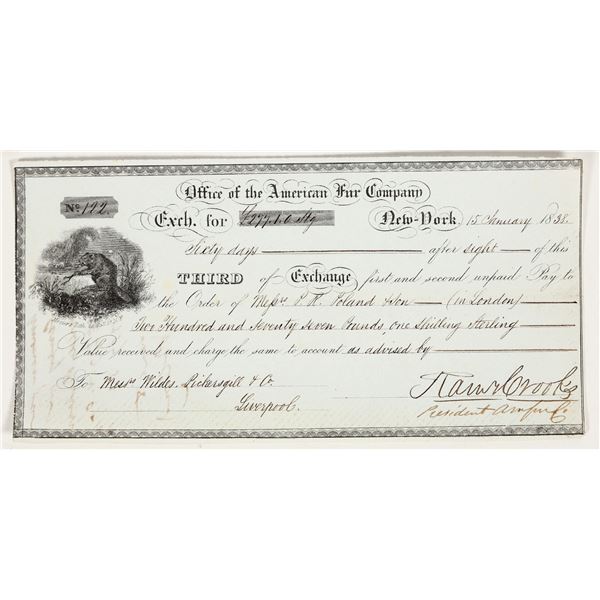 Office of the American Fur Company
No. 122. Exch. for £277.1.0 Stg New-York 15 January 1838.
Sixty days after sight of this
THIRD of Exchange first and second unpaid Pay to
the Order of Messrs P. R. Poland & Son (in London)
Two Hundred and Seventy Seven Pounds, one Shilling Sterling
Value received and charge the same to account as advised by
To Messrs Wildes, Pickersgill & Co. Ramsay Crooks
Liverpool. President Am Fur Co.